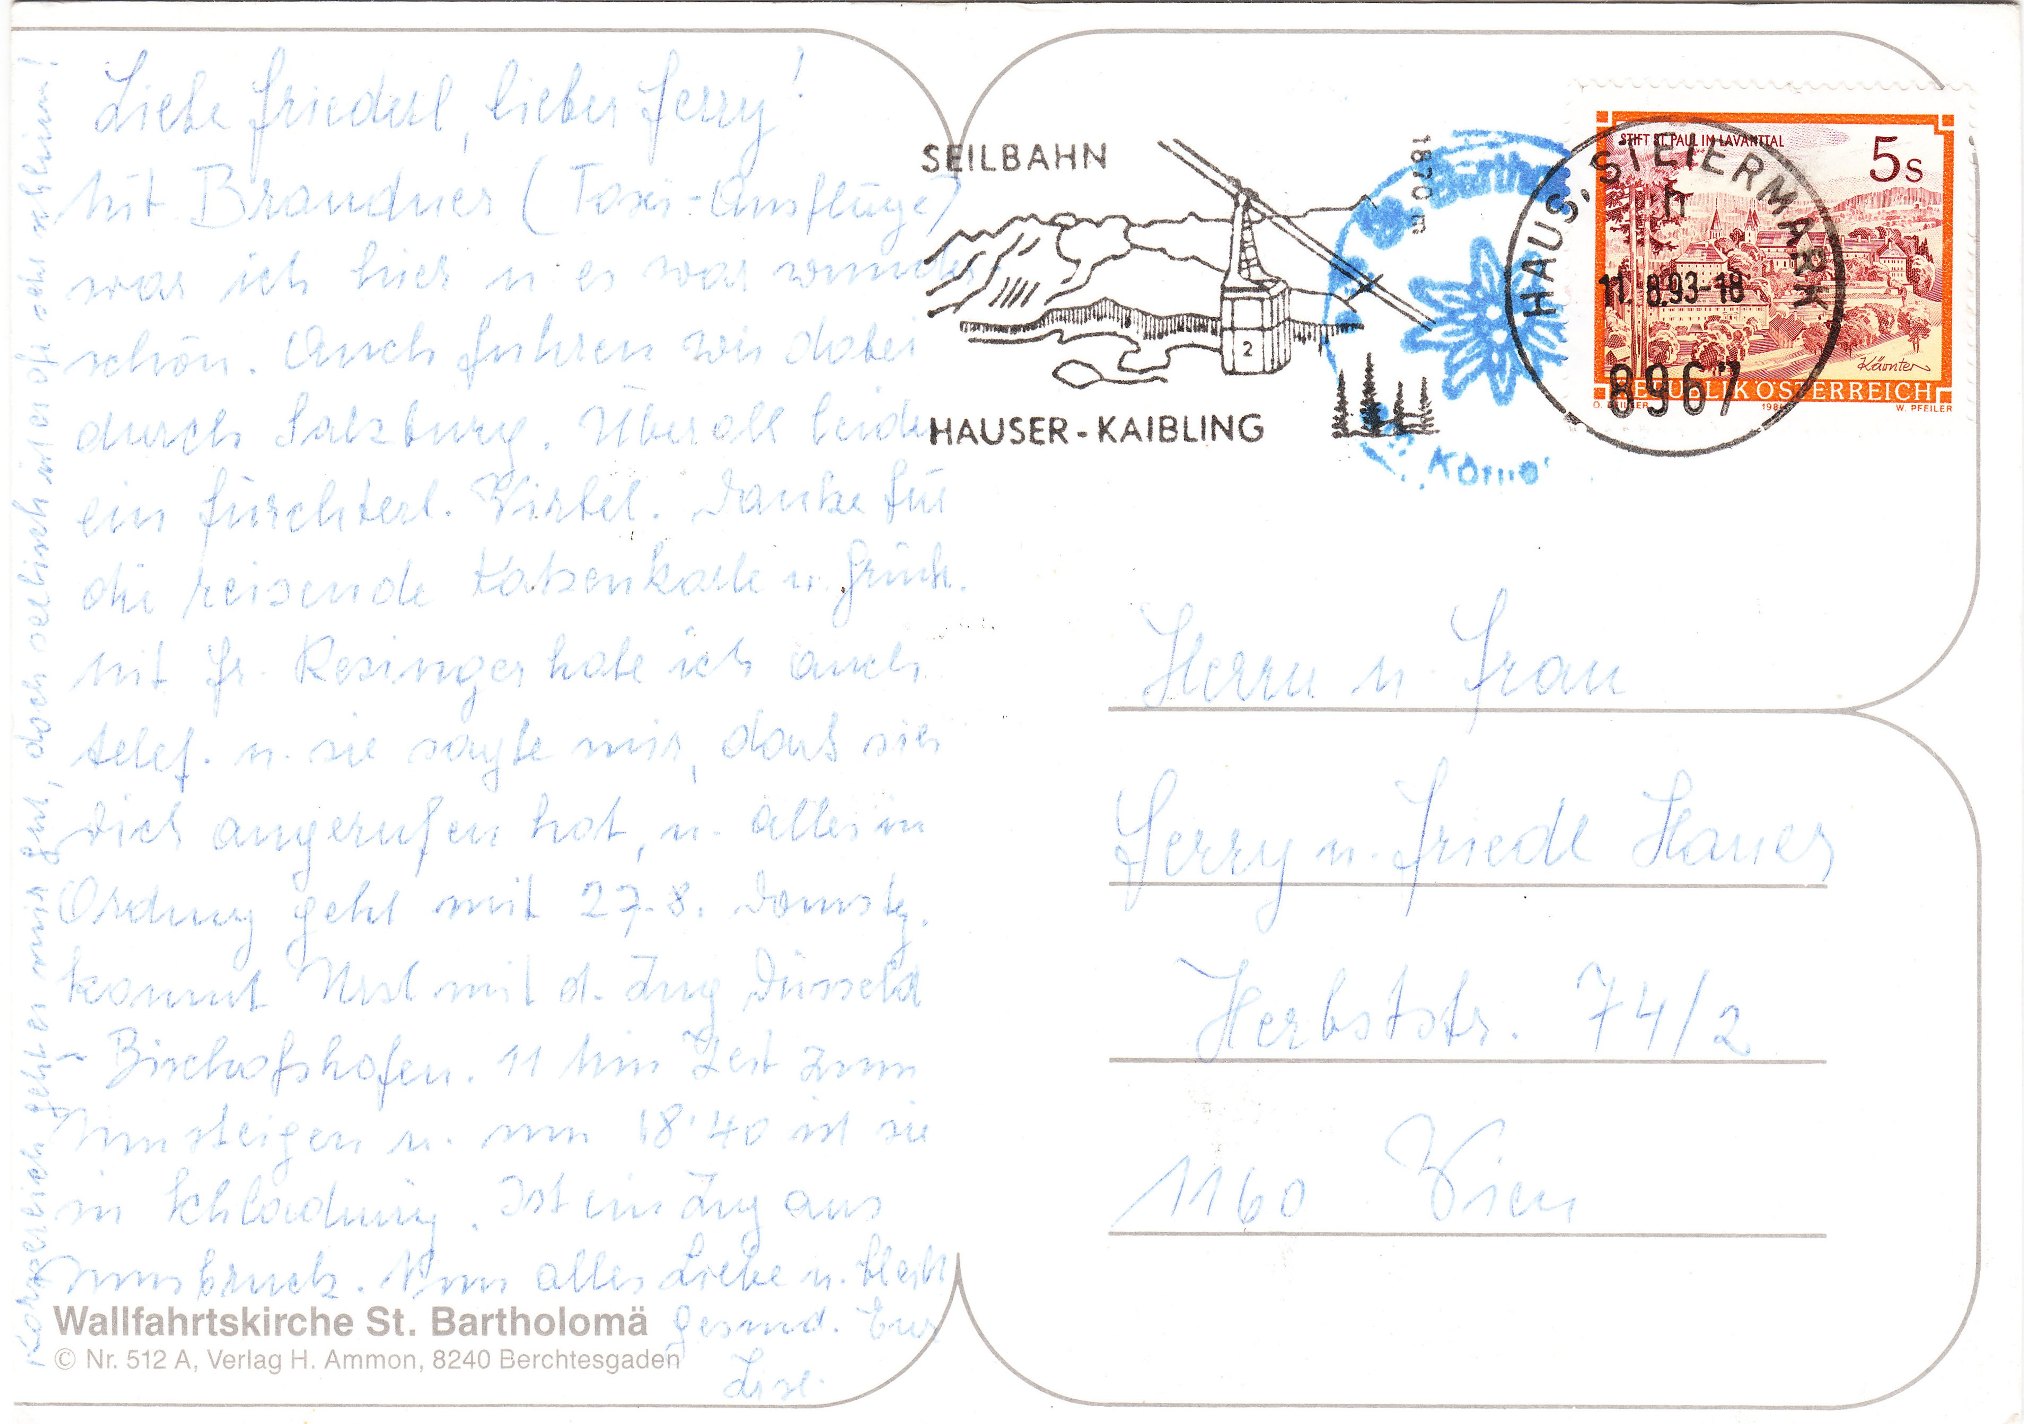 Liebe Friederl, lieber Ferry!
Mit Brandner (Taxi-Ausflüge)
war ich hier u es war wunder
schön. Auch fuhren wir dabei
durch Salzburg. Überall leider
ein fürchterl. Wirbel. Danke für
die reizende Katzenkarte u.
Mit Fr. Resinger habe ich auch
telef. u. sie sagte mir, daß sie
Dich angerufen hat, u. alles in
Ordnung geht mit 27.8.
kommt Ursl mit d. Zug Düsseld
- Bischofshofen. 11 Min Zeit zum
Umsteigen u. um 18'40 ist sie
in Schladming. Ist ein Zug aus
Innsbruck. Nun alles Liebe u. bleibt
gesund. Eure
Lisl.
Körperlich geht es mir gut, doch seelisch ist es oft sehr schlimm!
Wallfahrtskirche St. Bartholomä
© Nr. 512 A, Verlag H. Ammon, 8240 Berchtesgaden
SEILBAHN
1870 m
2
HAUSER-KAIBLING
HAUS, STEIERMARK
11. 8.93-18
8967
STIFT ST. PAUL IM LAVANTTAL
5 S
Kärnten
REPUBLIK ÖSTERREICH
W. PFEILER
Herrn u. Frau
Ferry u. Friedl Hauer
Herbststr. 74/2
1160 Wien